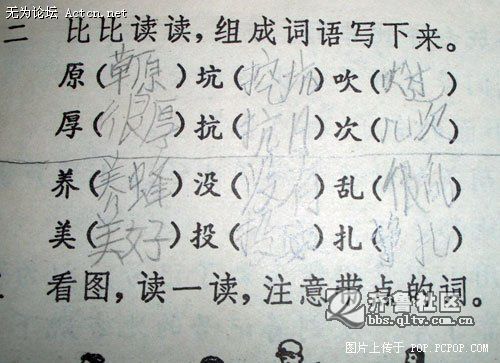 无为论坛 Actcn.net
二 比比读读，组成词语写下来。
原（草原）坑（挖坑）吹（吹过）
厚（很厚）抗（抗日）次（几次）
养（养蜂）没（没有）乱（很乱）
美（美好）投（投 ）扎（ 扎）
看图，读一读，注意带点的词。
齐鲁社区
bbs.qltv.com.cn
图片上传于 POP.PCPOP.COM